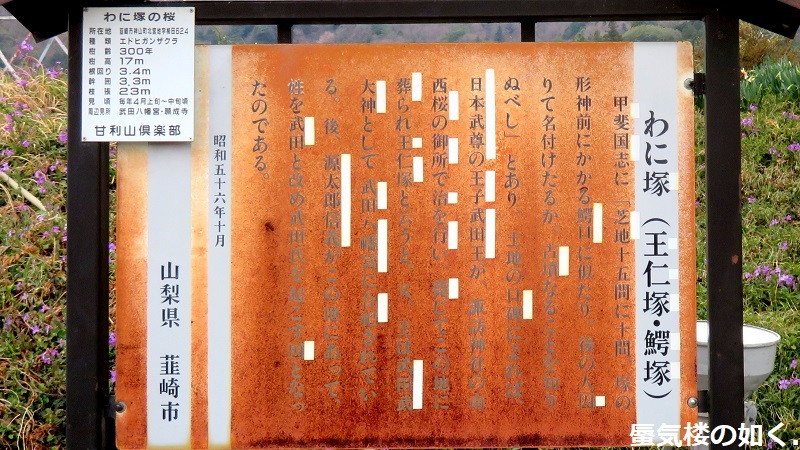 わに塚の桜
所在地 韮崎市神山町北宮地字桜田624
種類 エドヒガンザクラ
樹齢 300年
樹高 17m
根回り 3.4m
幹囲 3.3m
枝張 23m
見頃 毎年4月上旬～中旬頃
周辺見所 武田八幡宮・願成寺
甘利山倶楽部
わに塚(王仁塚・鰐塚)
甲斐国志に「芝地十五間に十間、塚の
形神前にかかる鰐口に似たり。
りて名付けたるか、古墳なることを知り
ぬべし」とあり、土地の口碑によれば、
日本武尊の王子武田王が、諏訪神社の南
西桜の御所で治を行い、この地に
葬られ王仁塚と云うと。
大神として、武田八幡宮に合祀されてい
る。後、源太郎信義がこの地にあって、
姓を武田と改め武田氏を起こす因となっ
たのである。
昭和五十六年十月
山梨県 韮崎市
蜃気楼の如く.